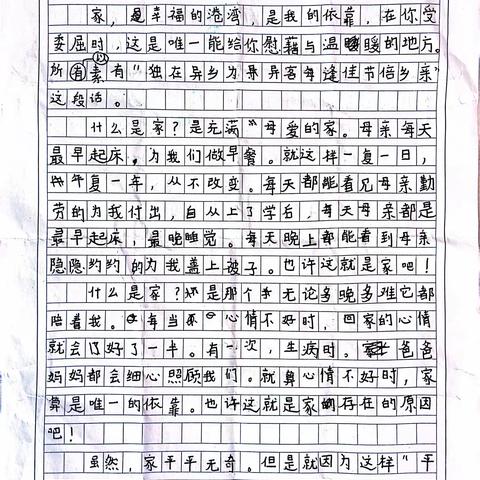 家，是幸福的港湾，是我的依靠，在你受
委屈时，这是唯一能给你慰藉与温暖暖的地方。
所以素有“独在异乡为异客每逢佳节倍乡亲”
这段话。
什么是家？是充满“母爱的家。母亲每天
最早起床，为我们做早餐。就这样一复一日，
午复一年，从不改变。每天都能看见母亲勤
劳的为我付出，自从上了学后，每天母亲都是
最早起床，最晚睡觉。每天晚上都能看到母亲
隐隐约约的为我盖上被子。也许这就是家吧！
什么是家？是那个无论多晚多难它都
陪着我。每当心情不好时，回家的心情
就会好了一半。有一次，生病时。爸爸
妈妈都会细心照顾我们。就算心情不好时，家
算是唯一的依靠。也许这就是家的存在的原因
吧！
虽然，家平平无奇。但是就因为这样“平